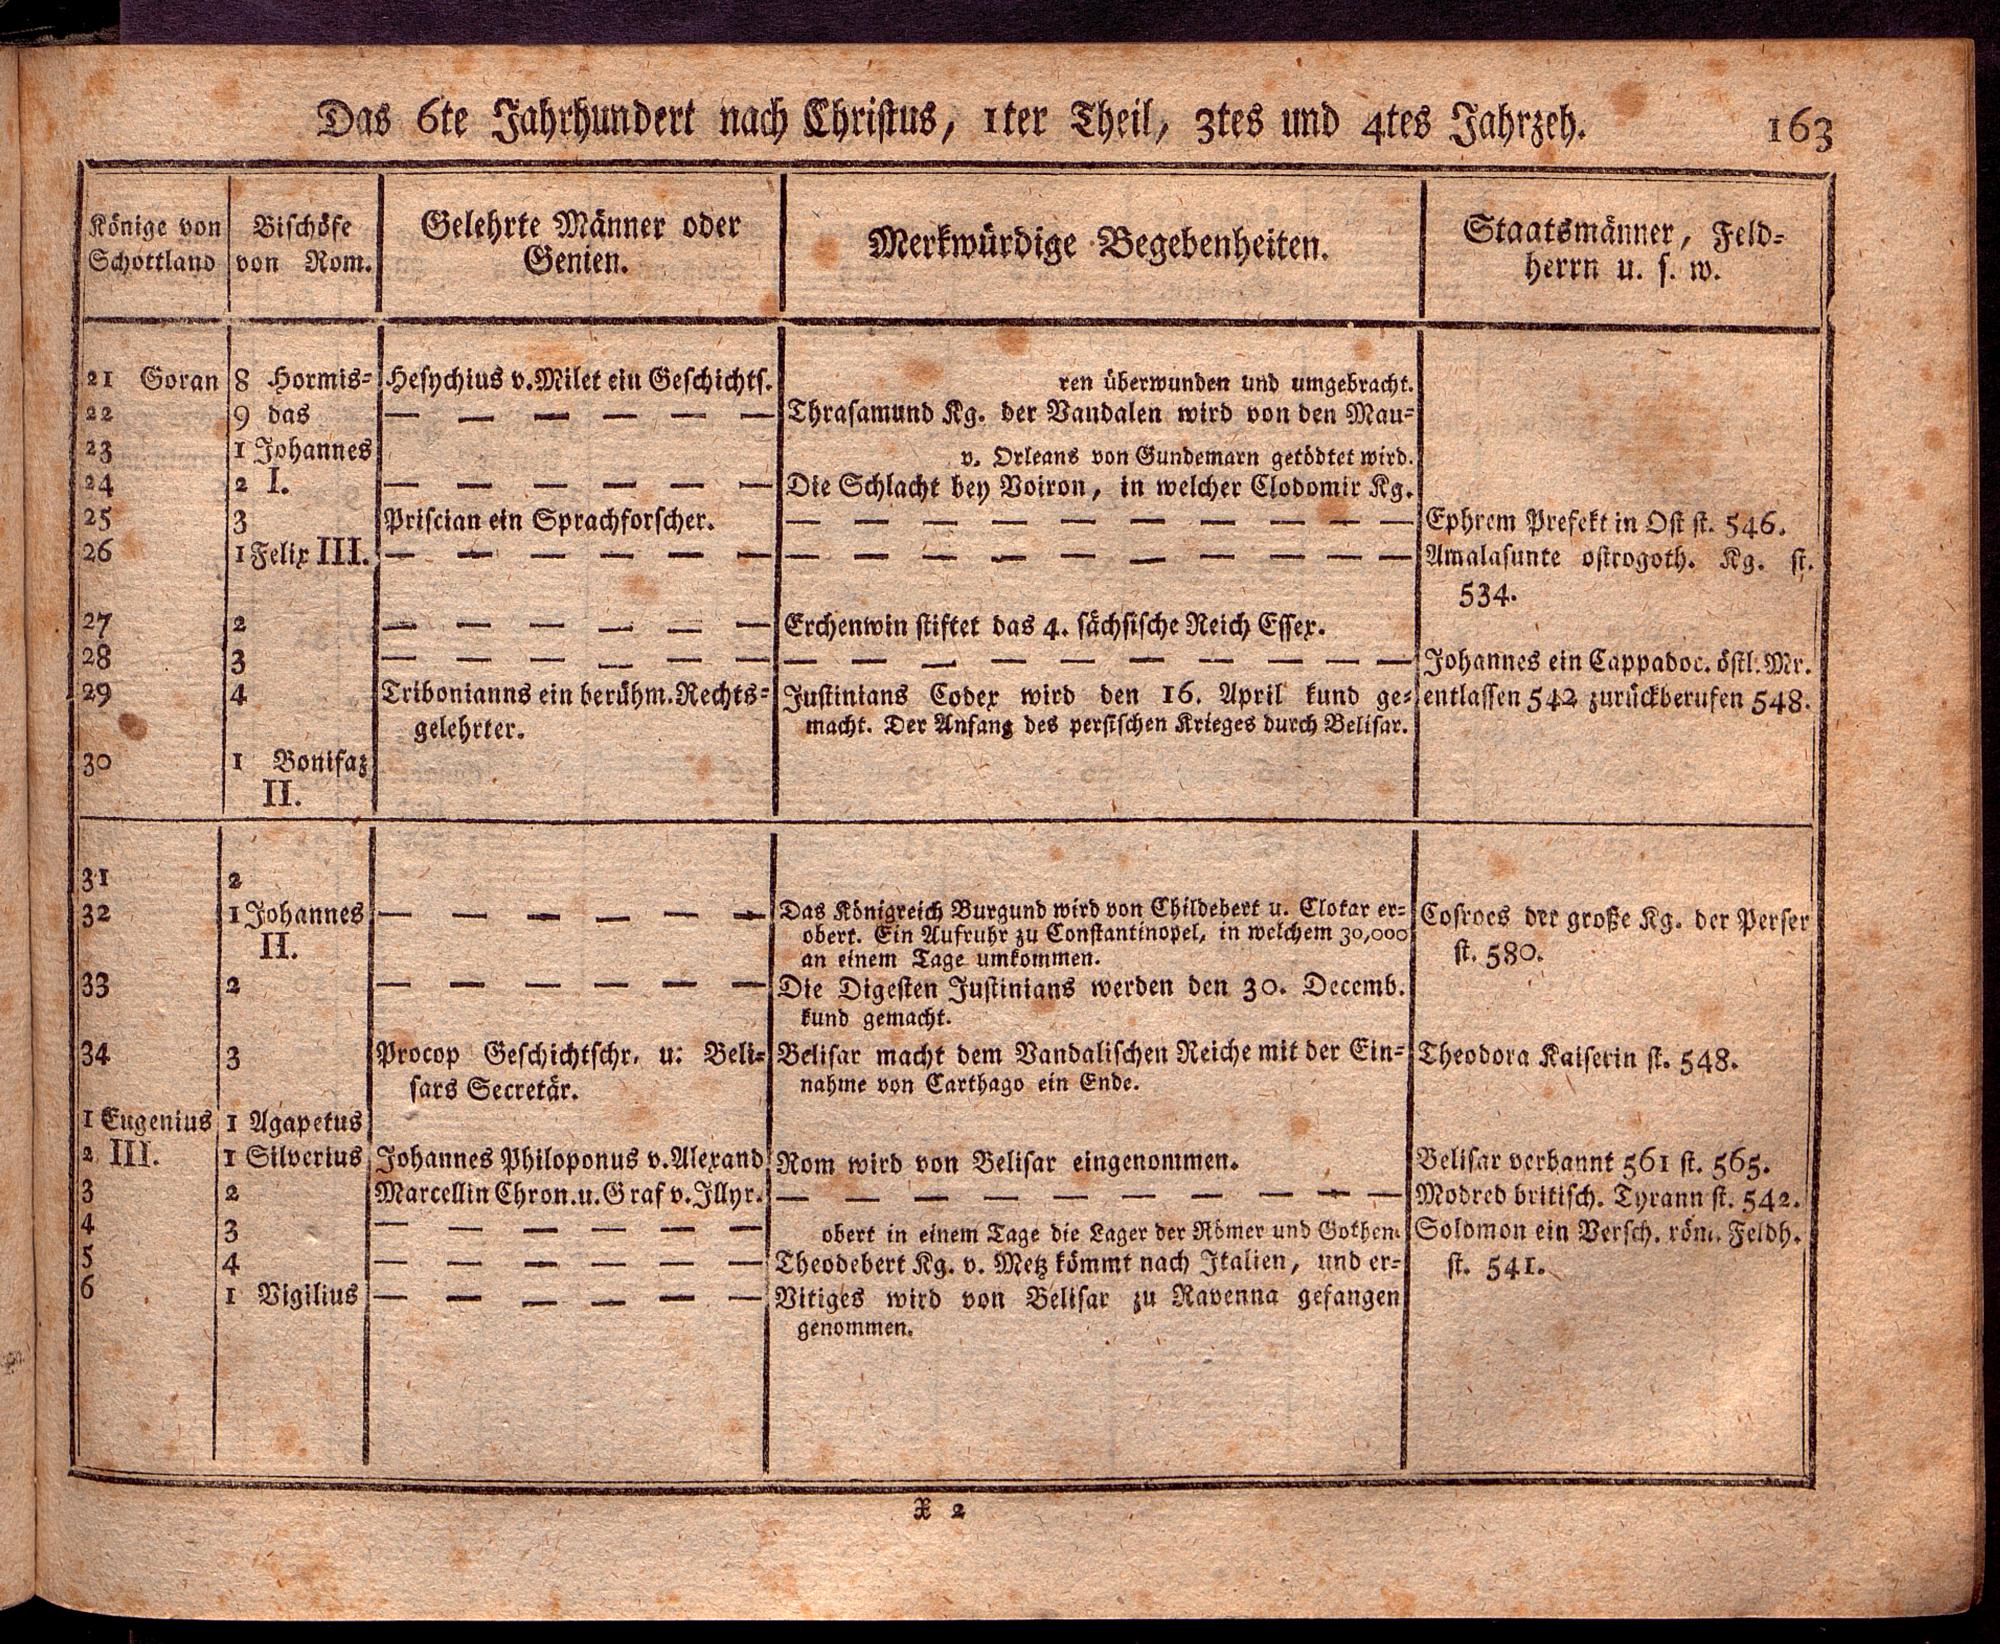 Das 6te Jahrhundert nach Christus, 1ter Theil, 3tes und 4tes Jahrzeh. 163
Könige von Schottland
Bischöfe von Rom.
Gelehrte Männer oder Genien.
Merkwürdige Begebenheiten.
Staatsmänner, Feld-
herrn u. s. w.
21 Goran 8 Hormis- Hesychius v. Milet ein Geschichts. ren überwunden und umgebracht.
22 9 das — — — — — — Thrasamund Kg. der Vandalen wird von den Mau-
23 1 Johannes v. Orleans von Gundemarn getödtet wird.
24 2 I. — — — — — — Die Schlacht bey Voiron, in welcher Clodomir Kg.
25 3 Priscian ein Sprachforscher. — — — — — — — — — Ephrem Prefekt in Ost st. 546.
26 1 Felix III. — — — — — — — — — — — — — — — Amalasunte ostrogoth. Kg. st.
534.
27 2 — — — — — — Erchenwin stiftet das 4. sächsische Reich Essex.
28 3 — — — — — — — — — — — — — — — Johannes ein Cappadoc. östl. Mr.
29 4 Tribonianns ein berühm. Rechts- Justinians Codex wird den 16. April kund ge- entlassen 542 zurückberufen 548.
gelehrter. macht. Der Anfang des persischen Krieges durch Belisar.
30 1 Bonifaz
II.
31 2
32 1 Johannes — — — — — — Das Königreich Burgund wird von Childebert u. Clotar er- Cosroes der große Kg. der Perser
II. obert. Ein Aufruhr zu Constantinopel, in welchem 30,000 st. 580.
an einem Tage umkommen.
33 2 — — — — — — Die Digesten Justinians werden den 30. Decemb.
kund gemacht.
34 3 Procop Geschichtschr. u. Beli- Belisar macht dem Vandalischen Reiche mit der Ein- Theodora Kaiserin st. 548.
sars Secretär. nahme von Carthago ein Ende.
1 Eugenius 1 Agapetus
2 III. 1 Silverius Johannes Philoponus v. Alexand Rom wird von Belisar eingenommen. Belisar verbannt 561 st. 565.
3 2 Marcellin Chron. u. Graf v. Illyr. — — — — — — — — — Modred britisch. Tyrann st. 542.
4 3 — — — — — — obert in einem Tage die Lager der Römer und Gothen. Solomon ein Versch. röm. Feldh.
5 4 — — — — — — Theodebert Kg. v. Metz kömmt nach Italien, und er- st. 541.
6 1 Vigilius — — — — — — Vitiges wird von Belisar zu Ravenna gefangen
genommen.
X 2